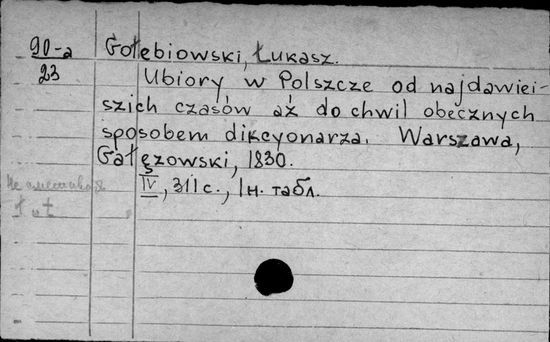 90-a
23
Gołebiowski, Łukasz.
Ubiory w Polszcze od najdawiei-
szich czasów aż do chwil obecznych
sposobem dikcyonarza. Warszawa,
Gałęzowski, 1830.
5
IV, 311 с., 1 н. табл.